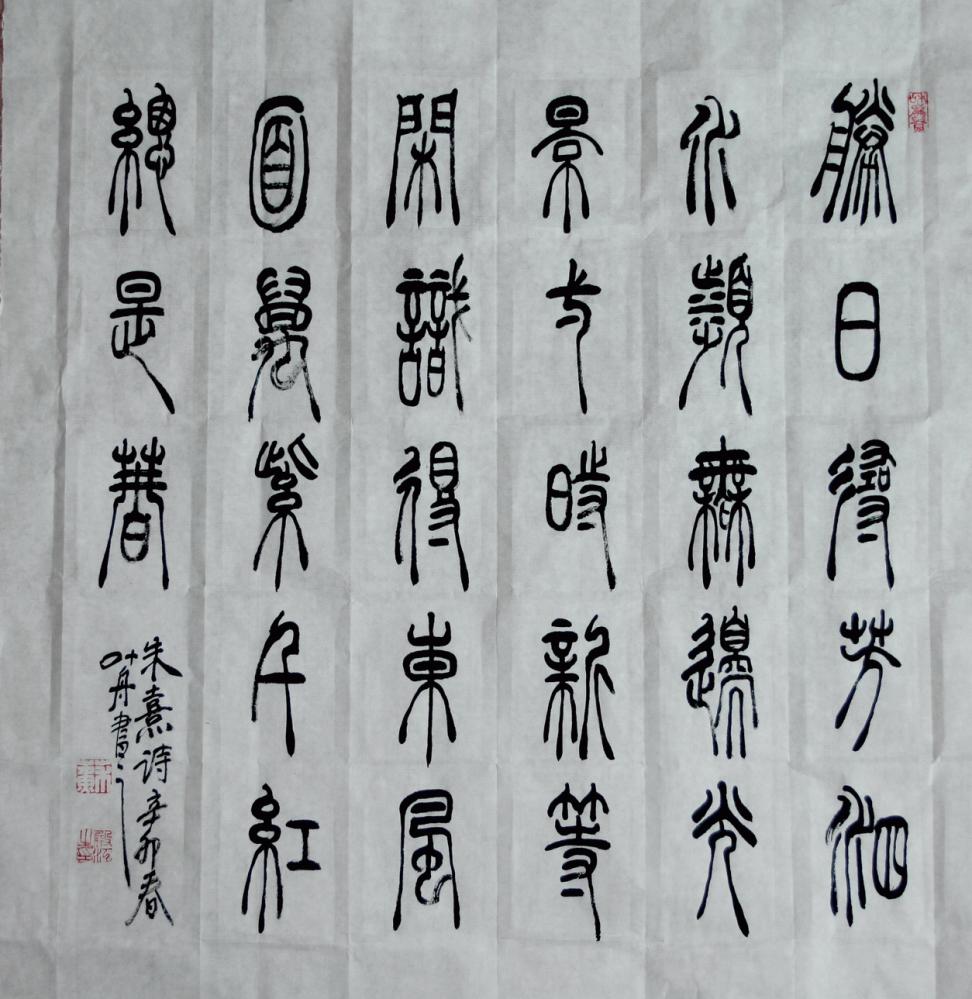 勝日尋芳泗
水瀕無邊光
景一時新等
閑識得東風
面萬紫千紅
總是春
朱熹诗辛卯春
叶舟書